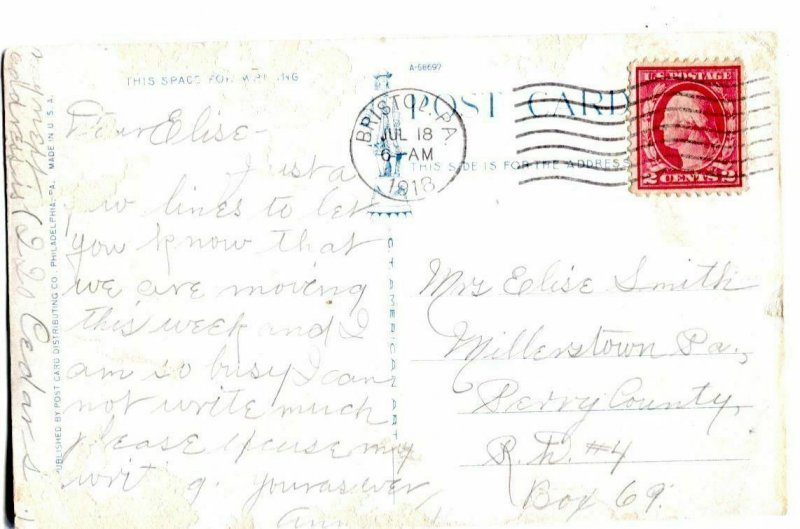 THIS SPACE FOR WRITING
A-58697
POST CARD
THIS SIDE IS FOR THE ADDRESS
BRISTOL, PA.
JUL 18
6-AM
1918
U.S. POSTAGE
2 CENTS 2
PUBLISHED BY POST CARD DISTRIBUTING CO., PHILADELPHIA, PA. MADE IN U.S.A.
CT AMERICAN ART
Dear Elise -
Just a
few lines to let
you know that
we are moving
this week and I
am so busy I can
not write much
please excuse my
writ g. yours as ever,
Ann
address is 220 Cedar S
Mrs Elise Smith
Millerstown Pa.,
Perry County,
R.D. #4
Box 69.